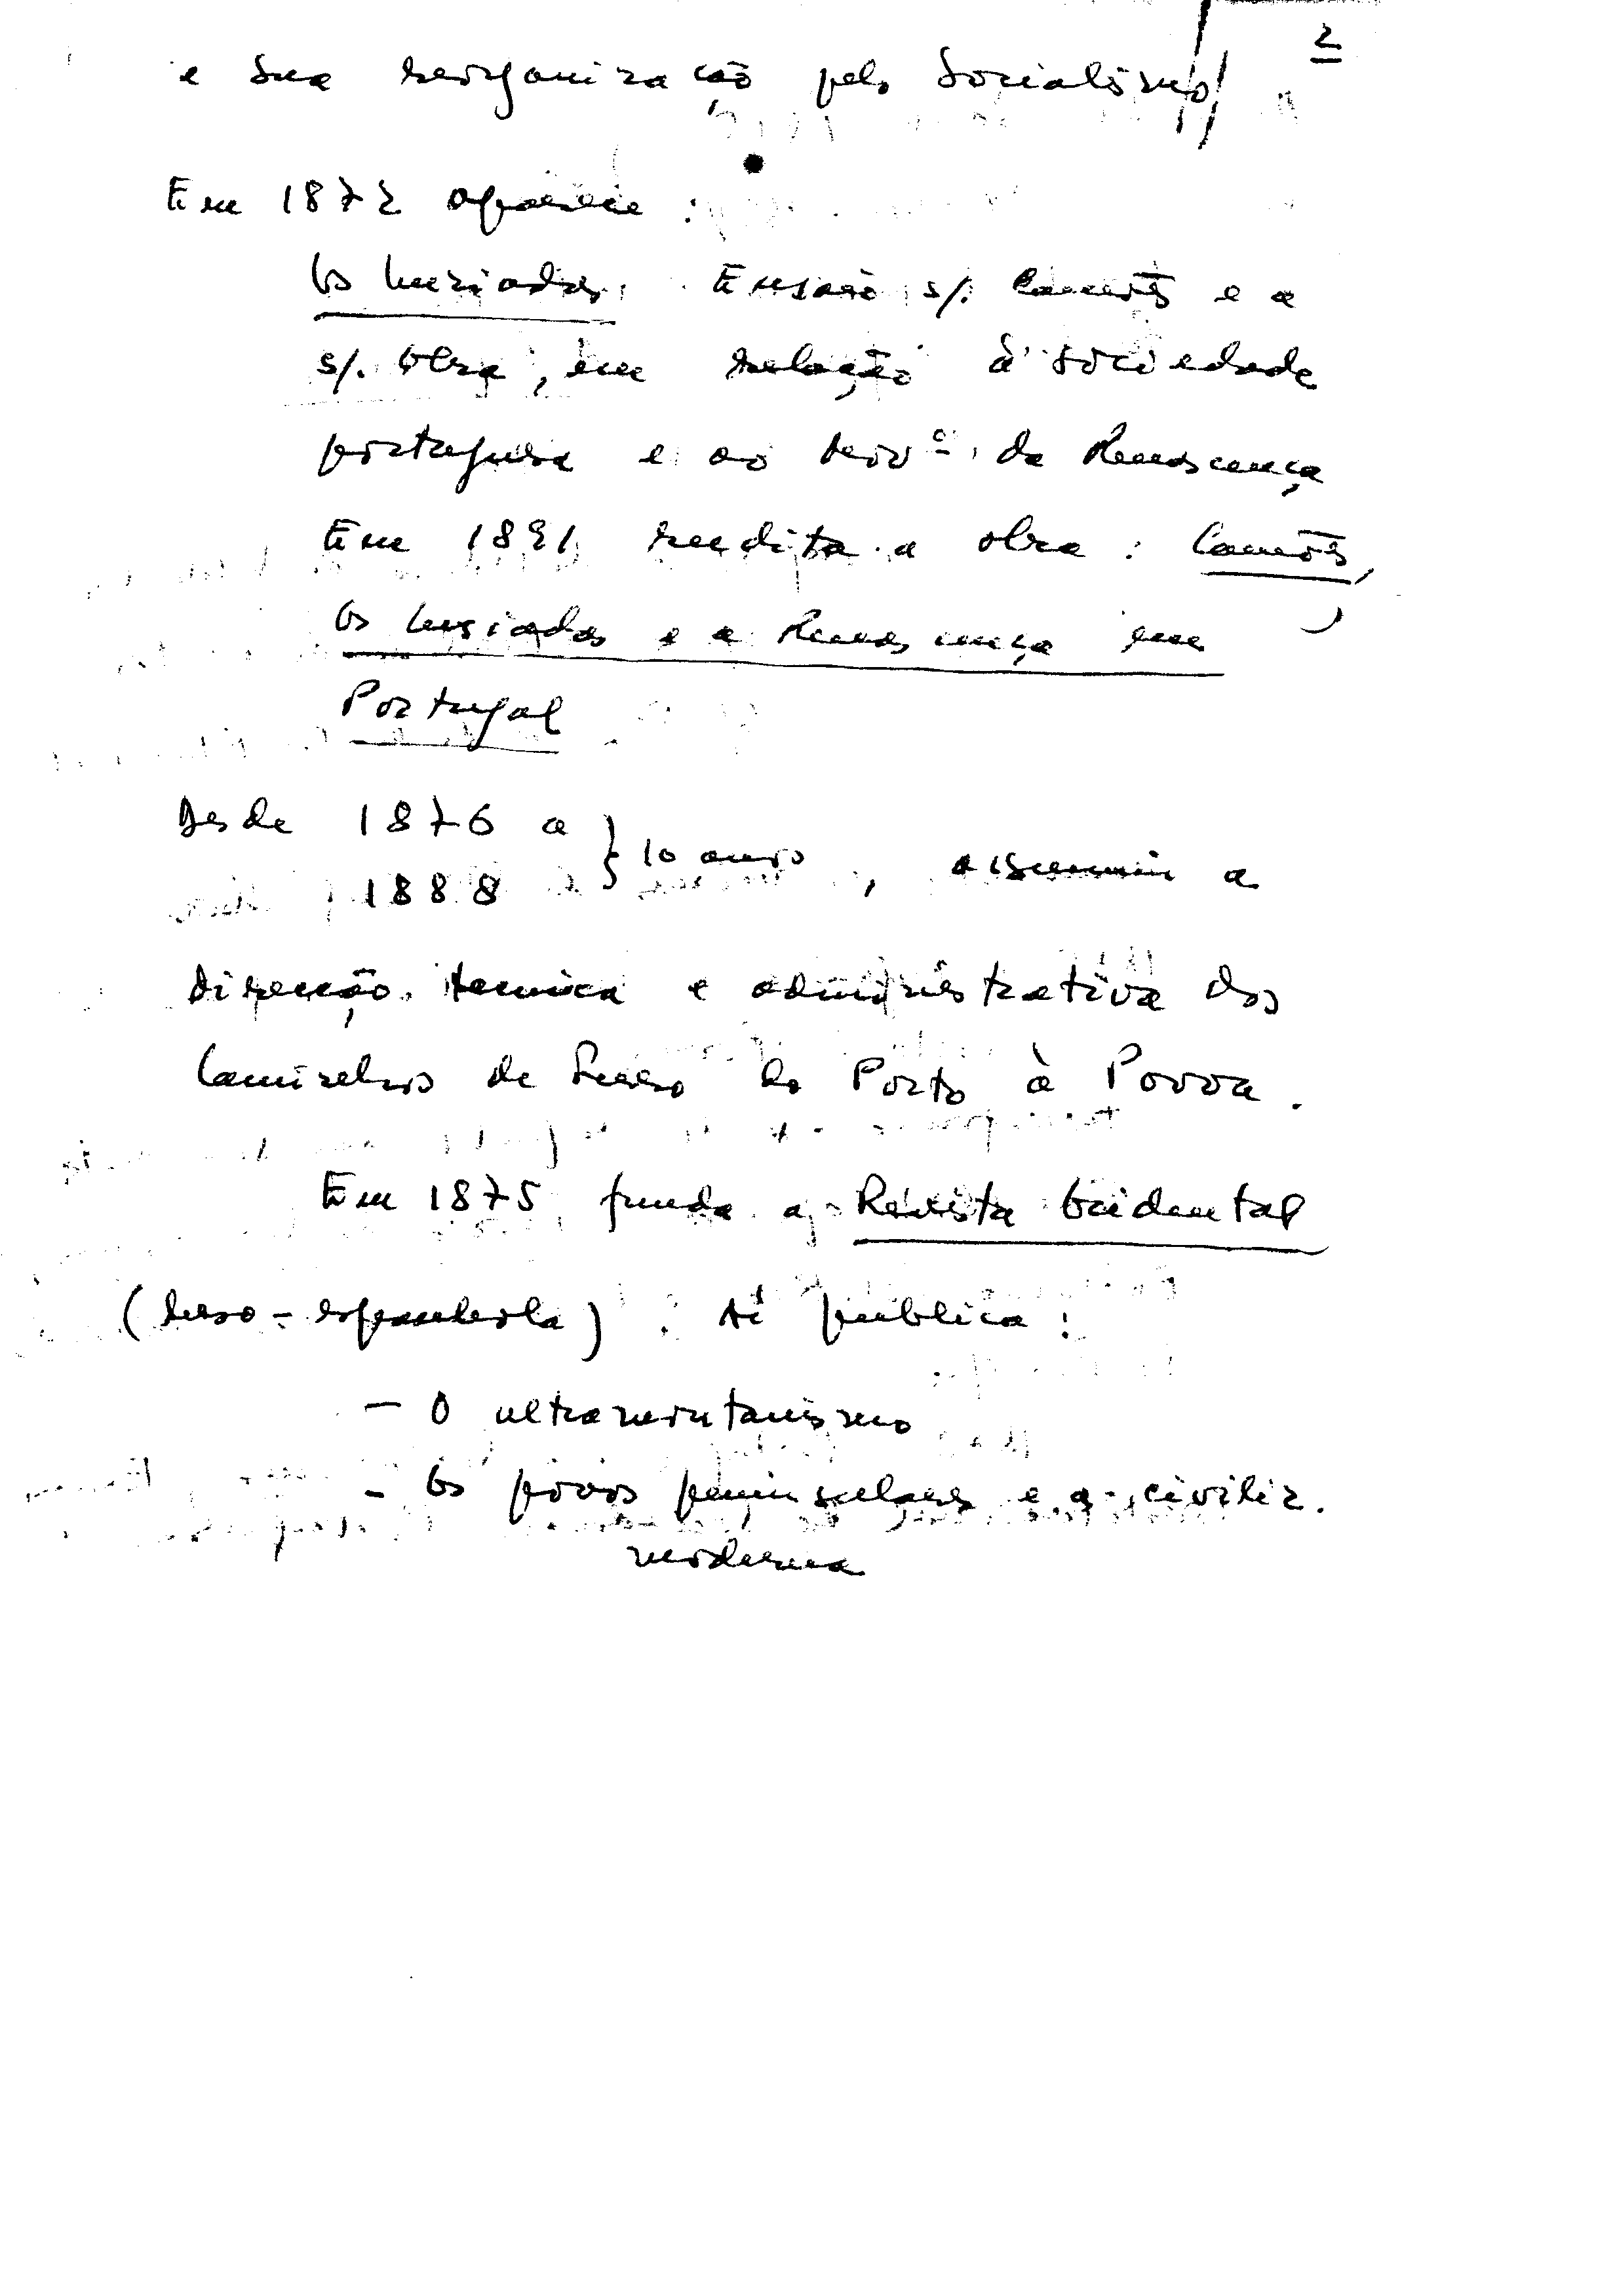 2
e sua reorganização pelo Socialismo
Em 1872 aparece :
Os Lusiadas. Ensaio s/. Camões e a
s/. obra, em relação à sociedade
portuguesa e ao movº da Renascença
Em 1891 reedita a obra : Camões,
Os Lusiadas e a Renascença em
Portugal
Desde 1876 a
1888 } 10 anos, assumiu a
direcção técnica e administrativa dos
Caminhos de Ferro do Porto à Povoa.
Em 1875 funda a Revista Ocidental
(luso-espanhola). Aí publica :
- O ultramontanismo
- Os povos peninsulares e a civiliz.
moderna